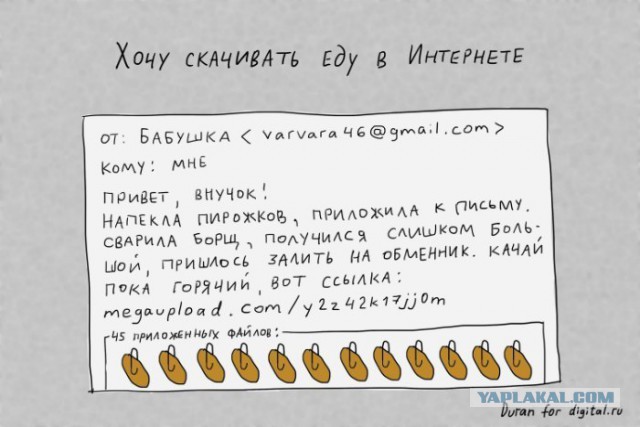 Хочу скачивать еду в Интернете
от: Бабушка <varvara46@gmail.com>
кому: мне
Привет, внучок!
Напекла пирожков, приложила к письму.
Сварила борщ, получился слишком боль-
шой, пришлось залить на обменник. Качай
пока горячий, вот ссылка:
megaupload.com/y2z42k17jj0m
45 приложенных файлов:
YAPLAKAL.COM
Duran for digital.ru